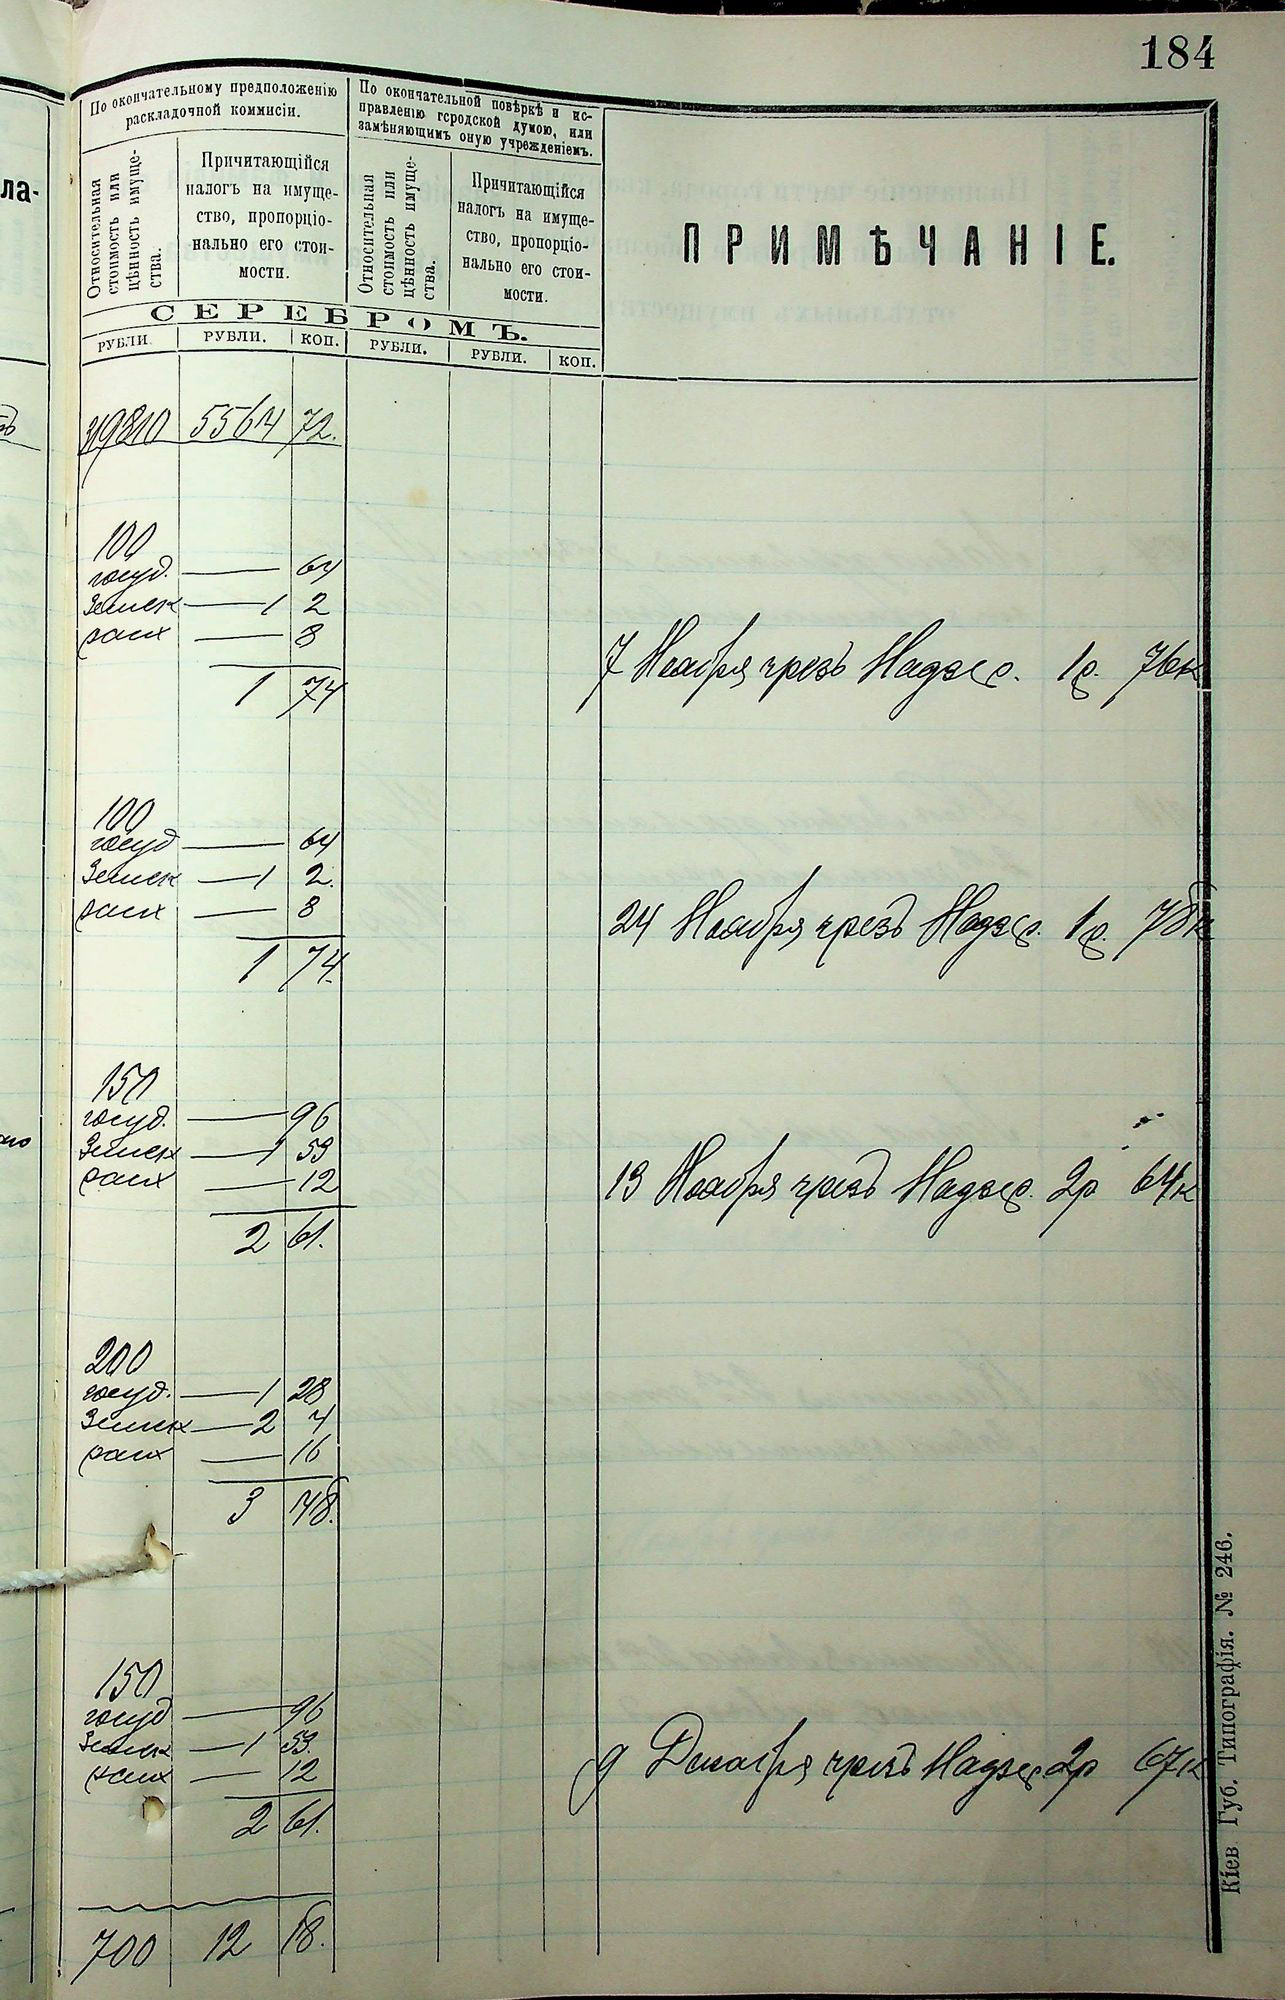 184
По окончательному предположенію
раскладочной коммисіи.
По окончательной повѣркѣ и ис-
правленію городской думою, или
замѣняющимъ оную учрежденіемъ.
Относительная
стоимость или
цѣнность имуще-
ства.
Причитающійся
налогъ на имуще-
ство, пропорціо-
нально его стои-
мости.
Относительная
стоимость или
цѣнность имуще-
ства.
Причитающійся
налогъ на имуще-
ство, пропорціо-
нально его стои-
мости.
ПРИМѢЧАНІЕ.
СЕРЕБРОМЪ.
РУБЛИ. РУБЛИ. КОП. РУБЛИ. РУБЛИ. КОП.
ла-
5564 72.
100
госуд. — 64
Земск — 1 2
расх — 8
1 74
7 Ноября чрезъ Надзир. 1р. 76к
100
госуд — 64
Земск — 1 2.
расх — 8
1 74.
24 Ноября чрезъ Надзир. 1р. 78к
150
госуд. — 96
Земск — 1 53
расх — 12
2 61.
13 Ноября чрезъ Надзир. 2р 64к
200
госуд. — 1 28
Земск — 2 4
расх — 16
3 48.
150
госуд — 96
Земск — 1 53.
расх — 12
2 61.
9 Декабря чрезъ Надзир 2р 67к
700 12 18.
Кіев Губ. Типографія. № 246.